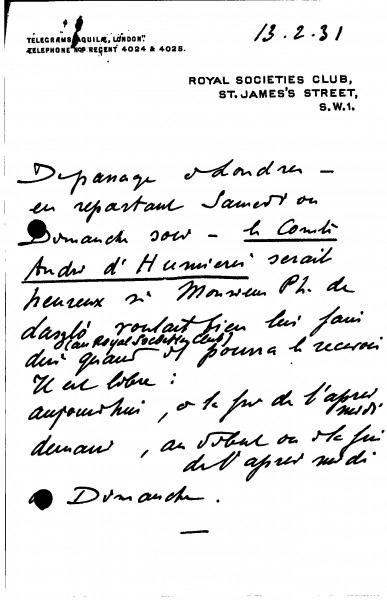 TELEGRAMS AQUILÆ, LONDON.
TELEPHONE NOS REGENT 4024 & 4025.
13.2.31
ROYAL SOCIETIES CLUB,
ST. JAMES'S STREET,
S.W.1.
De passage à Londres —
en repartant Samedi ou
Dimanche soir — le Comte
André d'Humières serait
heureux si Monsieur Ph. de
Laszló voulait bien lui faire
(au Royal Societies Club)
dire quand il pourra le recevoir
Il est libre :
aujourd'hui, à la fin de l'après midi
demain, au début ou à la fin
de l'après midi
Dimanche.